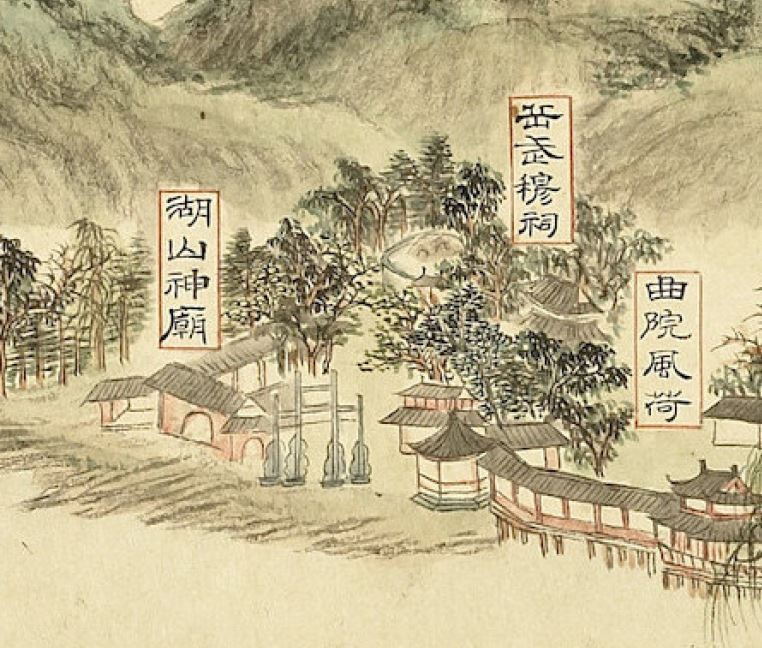 曲院風荷
岳武穆祠
湖山神廟